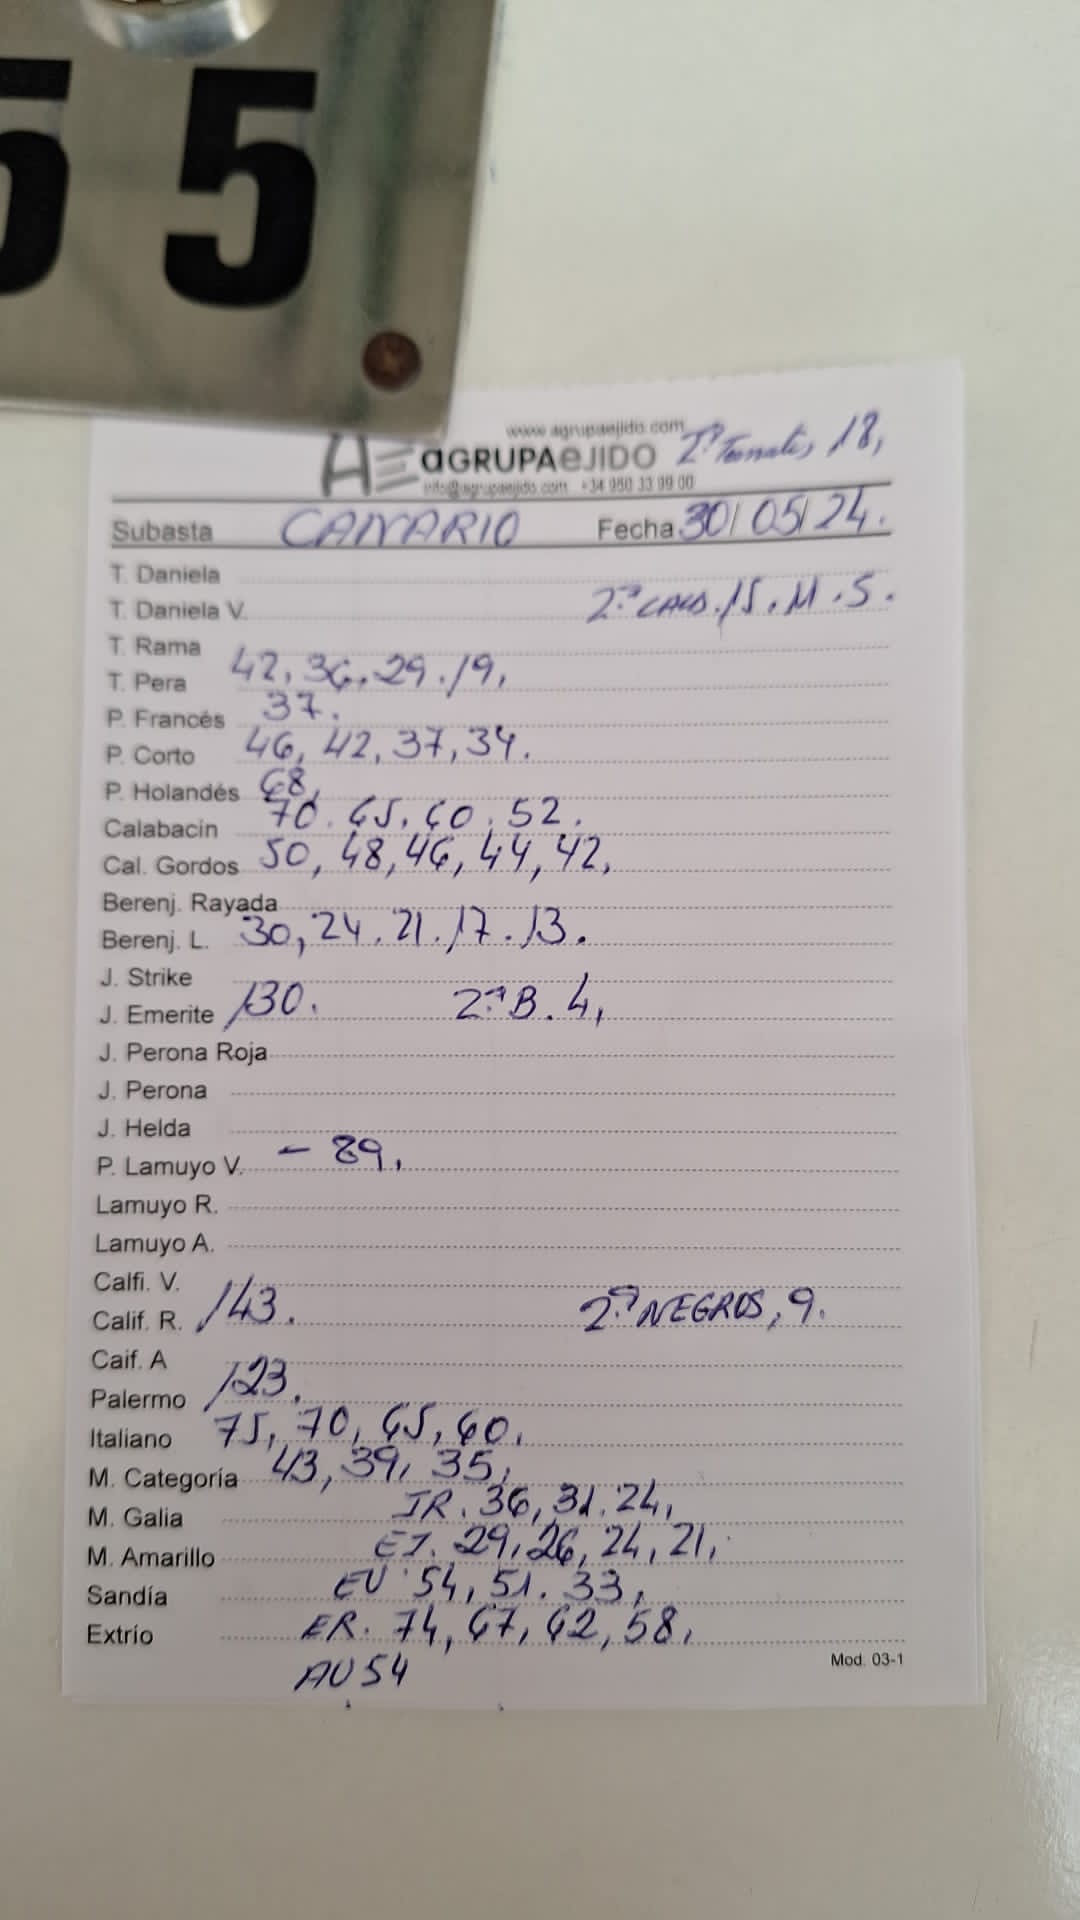 55
www.agrupaejido.com
AE aGRUPAeJIDO 2ª Tomate, 18,
info@agrupaejido.com +34 950 33 99 00
Subasta CANARIO Fecha 30/05/24.
T. Daniela
T. Daniela V. 2ª CALB. 15. M. 5.
T. Rama
T. Pera 42, 36, 29. 19,
P. Francés 37.
P. Corto 46, 42, 37, 34.
P. Holandés 68,
Calabacin 70. 65, 60. 52.
Cal. Gordos 50, 48, 46, 44, 42,
Berenj. Rayada
Berenj. L. 30, 24. 21. 17. 13.
J. Strike
J. Emerite 130. 2ª B. 4,
J. Perona Roja
J. Perona
J. Helda
P. Lamuyo V. - 89,
Lamuyo R.
Lamuyo A.
Calfi. V.
Calif. R. 143. 2ª NEGROS, 9.
Caif. A
Palermo 123.
Italiano 75, 70, 65, 60,
M. Categoría 43, 39, 35,
M. Galia IR. 36, 31. 24,
M. Amarillo EJ. 29, 26, 24, 21,
Sandía EU 54, 51. 33,
Extrío ER. 74, 67, 62, 58,
Mod. 03-1
AU 54